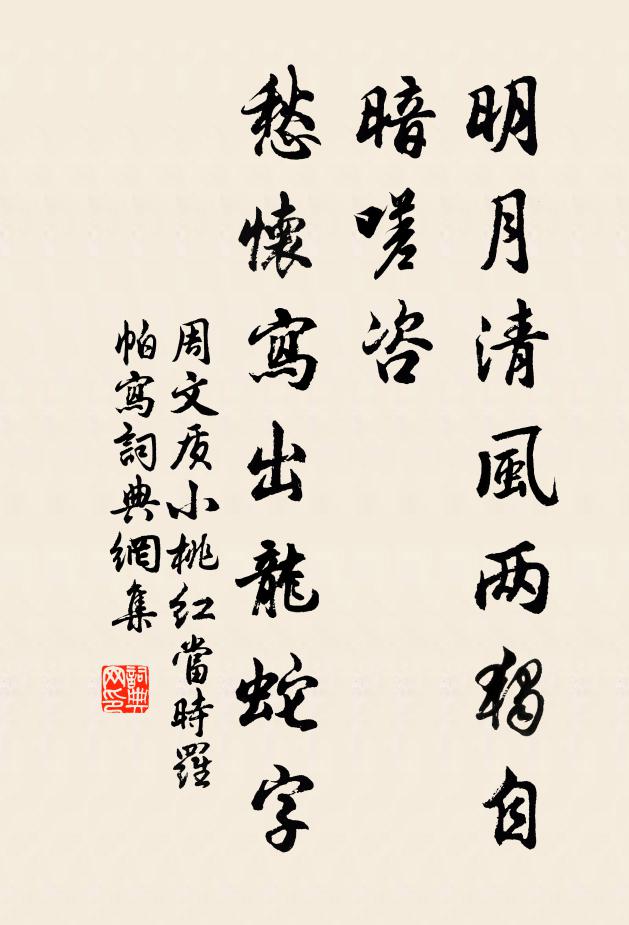 明月清風两獨自
暗嗟咨
愁懷寫出龍蛇字
周文质小桃紅當時羅
帕寫詞典網集
詞典网印